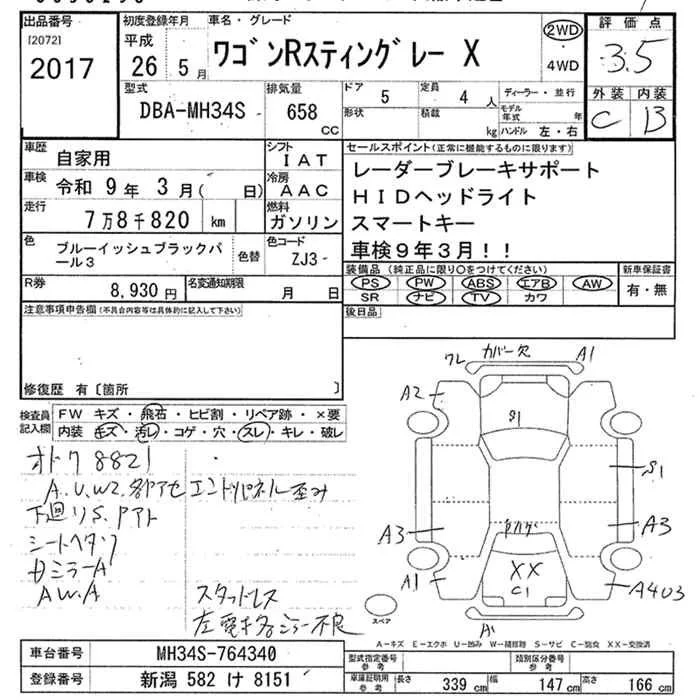 出品番号
[2072]
2017
初度登録年月
平成
26 5 月
車名・グレード
ワゴンRスティングレー X
2WD
・
4WD
評価点
3.5
外装 内装
C B
型式
DBA-MH34S
排気量
658
CC
ドア
5
定員
4 人
形状
積載
kg
ディーラー・並行
モデル年式
年
ハンドル 左・右
車歴
自家用
シフト
IAT
車検
令和 9 年 3 月( 日)
冷房
AAC
走行
7万8千820 km
燃料
ガソリン
色
ブルーイッシュブラックパール3
色替
色コード
ZJ3-
R券
8,930 円
名変通知期限
月 日
セールスポイント(正常に機能するものに限ります)
レーダーブレーキサポート
HIDヘッドライト
スマートキー
車検9年3月!!
装備品(純正品に限り○をつけてください)
PS PW ABS エアB AW
SR ナビ TV カワ
新車保証書
有・無
後日品
注意事項申告欄(不具合内容等は具体的に記入して下さい)
修復歴 有〔箇所 〕
検査員記入欄
FW キズ・飛石・ヒビ割・リペア跡・×要
内装 キズ・汚レ・コゲ・穴・スレ・キレ・破レ
オドク8821
A.U.W2.各アセ エンドパネル歪み
下廻りS.アアト
シートヘタリ
Dミラー A
A W.A
スタッドレス
左電格ミラー不良
ワレ カバー欠 A1
A2
S1
S1
A3
A3
A1
XX
C1
A403
スペア
A-キズ E-エクボ U-凹み W-補修跡 S-サビ C-腐食 XX-交換済
車台番号
MH34S-764340
登録番号
新潟 582 け 8151
型式指定番号
参考
類別区分番号
参考
車庫証明用
参考
長さ
339 cm
幅
147 cm
高さ
166 cm